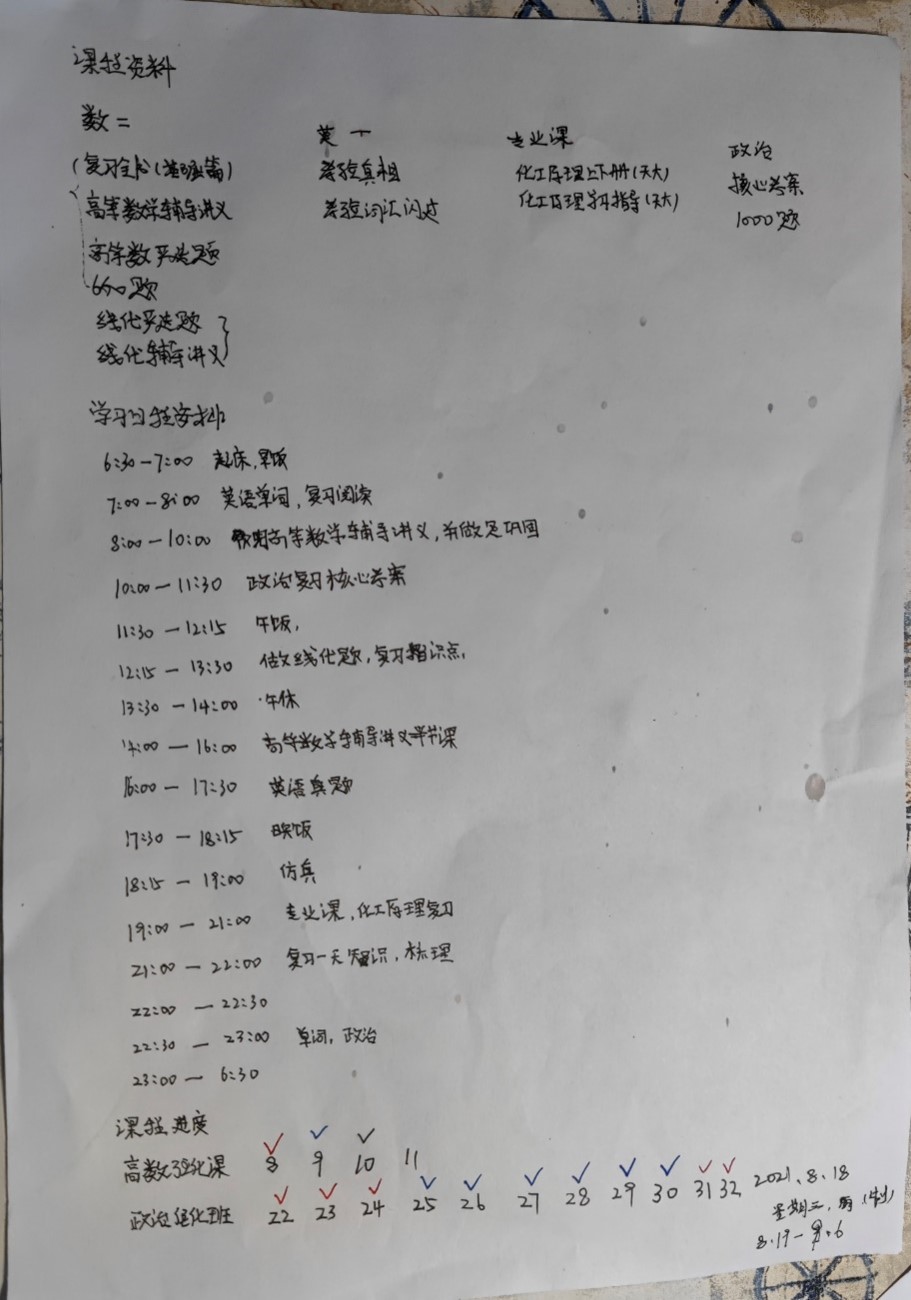 课程资料
数二
英一
专业课
政治
(复习全书(基础篇)
考验真相
化工原理上下册(天大)
核心考案
高等数学辅导讲义
考验词汇闪过
化工原理学习指导(天大)
1000题
高等数严选题
660题
线代严选题
线代辅导讲义
学习日程安排
6:30—7:00 起床,早饭
7:00—8:00 英语单词,复习阅读
8:00—10:00 高等数学辅导讲义,并做笔巩固
10:00—11:30 政治复习核心考案
11:30—12:15 午饭,
12:15—13:30 做线代题,复习知识点,
13:30—14:00 午休
14:00—16:00 高等数学辅导讲义半节课
16:00—17:30 英语真题
17:30—18:15 晚饭
18:15—19:00 仿真
19:00—21:00 专业课,化工原理复习
21:00—22:00 复习一天知识,梳理
22:00—22:30
22:30—23:00 单词,政治
23:00—6:30
课程进度
高数强化课 8 9 10 11
政治强化班 22 23 24 25 26 27 28 29 30 31 32
2021.8.18
星期三,
8.19—9.6